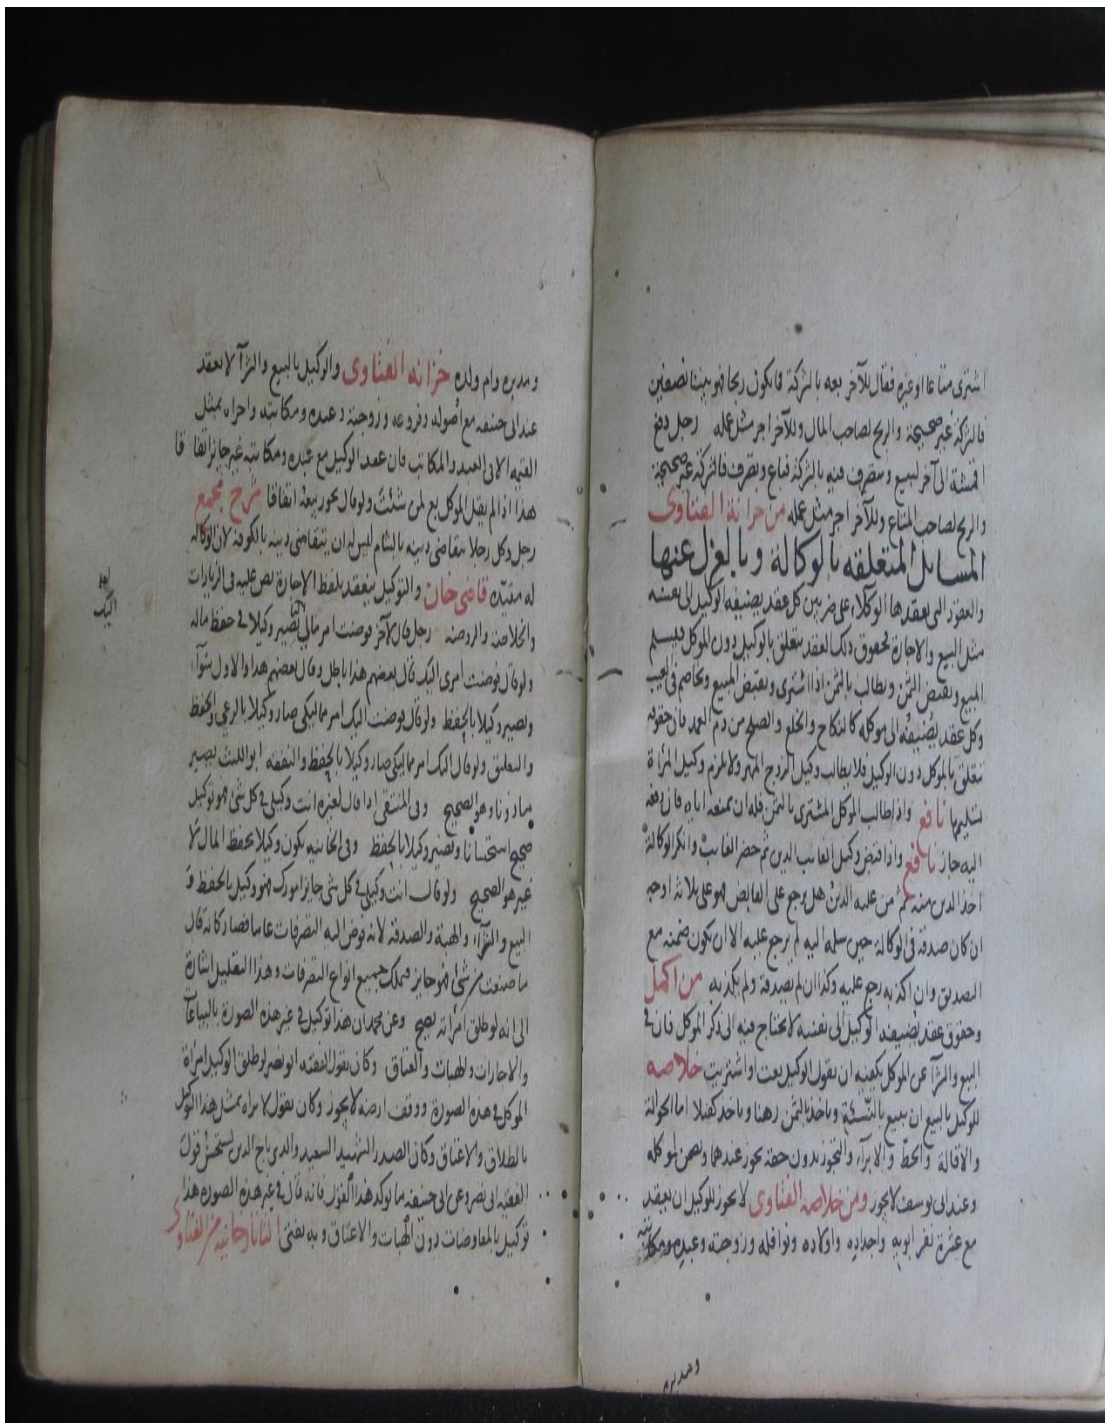 اشترى متاعا او غيره فقال للآخر بعه بالشركة فما يكون ربحا فهو بيننا نصفين
فالشركة غير صحيحة والربح لصاحب المال وللآخر اجر مثل عمله رجل دفع
اقمشة الى آخر ليبيع ويتصرف فيه بالشركة فباع وتصرف فالشركة غير صحيحة
والربح لصاحب المتاع وللآخر اجر مثل عمله من خزانة الفتاوى
المسائل المتعلقة بالوكالة وبالعزل عنها
والعقود التى يعقدها الوكلاء على ضربين كل عقد يضيفه الوكيل الى نفسه
مثل البيع والاجارة فحقوق ذلك العقد يتعلق بالوكيل دون الموكل فيسلم
المبيع ويقبض الثمن ويطالب بالثمن اذا اشترى ويقبض المبيع ويخاصم فى العيب
وكل عقد يضيفه الى موكله كالنكاح والخلع والصلح من دم العمد فان حقوقه
يتعلق بالموكل دون الوكيل فلا يطالب وكيل الزوج المهر ولا يلزم وكيل المرأة
تسليمها نافع واذا طالب الموكل المشترى بالثمن فله ان يمنعه اياه فان دفعه
اليه جاز نافع واذا قبض وكيل الغائب الدين ثم حضر الغائب وانكر الوكالة
اخذ الدين منه ثم من عليه الدين هل يرجع على القابض فهو على ثلاثة اوجه
ان كان صدقه فى الوكالة حين سلمه اليه لم يرجع عليه الا ان يكون ضمنه مع
التصديق وان اكذبه رجع عليه وكذا ان لم يصدقه ولم يكذبه من اكمل
وحقوق عقد يضيفه الوكيل الى نفسه لا يحتاج فيه الى ذكر الموكل فان فى
البيع والشرآ عن الموكل يكفيه ان يقول الوكيل بعت او اشتريت خلاصه
للوكيل بالبيع ان يبيع بالنسيئة وياخذ بالثمن رهنا وياخذ كفيلا اما الحوالة
والاقالة والحط والابرآء والتجوز بدون حقه يجوز عندهما ويضمن لموكله
وعند ابى يوسف لا يجوز ومن خلاصه الفتاوى لا يجوز للوكيل ان يعقد
مع عشرة نفر ابويه واجداده واولاده ونوافله وزوجته وعبده ومكاتبه
ومدبره
ومدبره وام ولده خزانه الفتاوى والوكيل بالبيع والشرآ لا يعقد
عند ابى حنيفه مع اصوله وفروعه وزوجته وعبده ومكاتبه واجراه بمثل
القيمه الا فى العبد والمكاتب فان عقد الوكيل مع عبده ومكاتبه غير جايز اتفاقا
هذا اذا لم يقل الموكل بع لمن شئت ولو قال يجوز بيعه اتفاقا شرح مجمع
رجل وكل رجلا بتقاضى دينه بالشام ليس له ان يتقاضى دينه بالكوفة لان الوكاله
له مقيده قاضى خان والتوكيل ينعقد بلفظ الاجازة نص عليه فى الزيادات
والخلاصة والروضه رجل قال لآخر فوضت امر مالى يصير وكيلا فى حفظ ماله
ولو قال فوضت امرى اليك قال بعضهم هذا باطل وقال بعضهم هذا والاول سوآء
ويصير وكيلا بالحفظ ولو قال فوضت اليك امر مماليكى صار وكيلا بالرعى والحفظ
والتعليق ولو قال اليك امر مماليكى صار وكيلا بالحفظ والنفقه ابو الليث يصير
ماذونا وهو الصحيح وفى المنتقى اذا قال لغيره انت وكيلى فى كل شئ فهو توكيل
صحيح استحسانا ويصير وكيلا بالحفظ وفى الخانيه يكون وكيلا بحفظ المال لا
غير هو الصحيح ولو قال انت وكيلى فى كل شئ جايز امرك فهو وكيل بالحفظ و
البيع والشرآء والهبة والصدقة لانه فوض اليه التصرفات عاما فصار كانه قال
ما صنعت من شئ فهو جايز فيملك جميع انواع التصرفات وهذا التعليل اشارة
الى انه لو طلق امرأته يصح وعن محمد ان هذا توكيل فى غير هذه الصورة بالبياعات
والاجارات والهبات والعتاق وكان يقول الفقيه ابو نصر لو طلق الوكيل امرأة
الموكل فى هذه الصورة ووقف ارضه لا يجوز وكان يقول لا يراه بمثل هذا التوكيل
بالطلاق والاعتاق وكان الصدر الشهيد السعيد والدى تاج الدين يستحسن قول
الفقيه ابى نصر وعن ابى حنيفه ما يوكد هذا القول فانه قال فى غير هذه الصوره هذا
توكيل بالمعاوضات دون الهبات والاعتاق وبه يفتى التاتارخانيه من الفتاوى
اليك